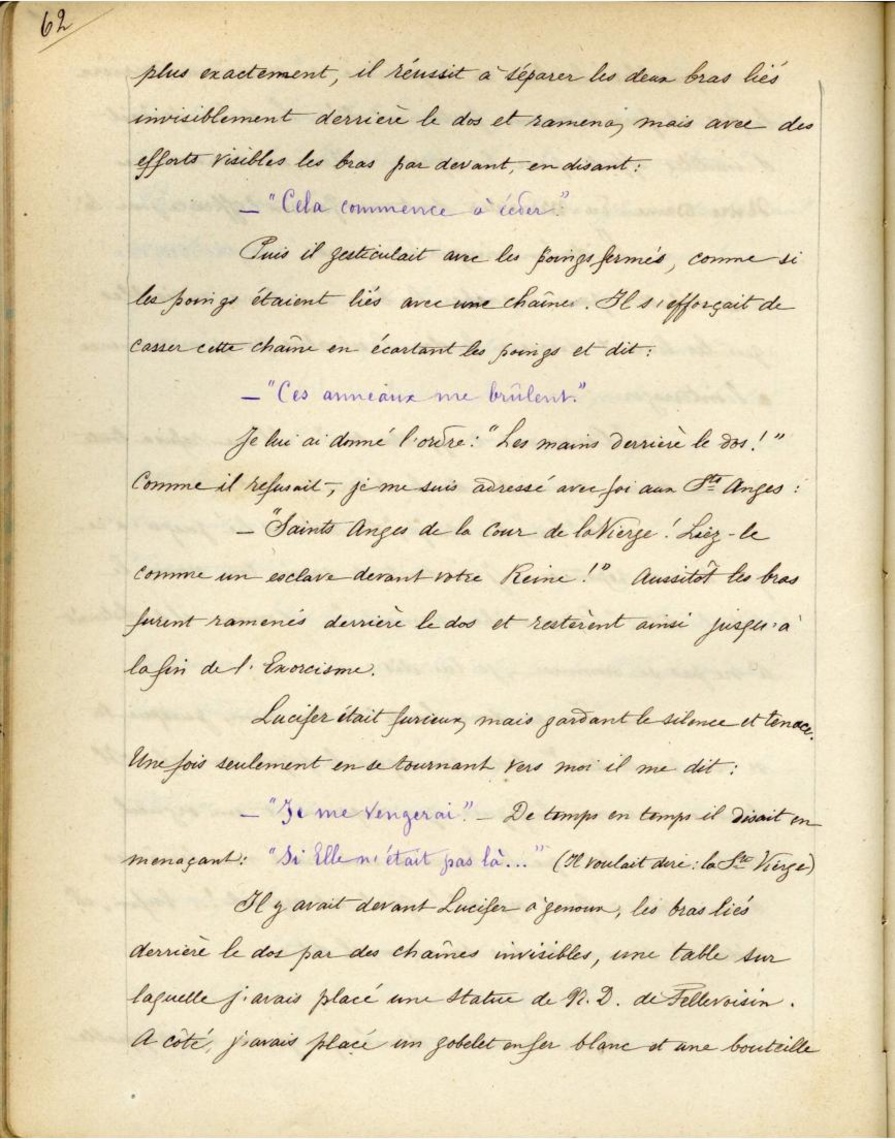 62
plus exactement, il réussit à séparer les deux bras liés
invisiblement derrière le dos et ramena, mais avec des
efforts visibles les bras par devant, en disant :
— "Cela commence à céder."
Puis il gesticulait avec les poings fermés, comme si
les poings étaient liés avec une chaîne. Il s'efforçait de
casser cette chaîne en écartant les poings et dit :
— "Ces anneaux me brûlent."
Je lui ai donné l'ordre : "Les mains derrière le dos ! "
Comme il refusait, je me suis adressé avec foi aux Sts Anges :
— "Saints Anges de la Cour de la Vierge ! Liez-le
comme un esclave devant votre Reine !" Aussitôt les bras
furent ramenés derrière le dos et restèrent ainsi jusqu'à
la fin de l'Exorcisme.
Lucifer était furieux, mais gardant le silence et tenace.
Une fois seulement en se tournant vers moi il me dit :
— "Je me vengerai". — De temps en temps il disait en
menaçant : "Si Elle n'était pas là..." (Il voulait dire : la Ste Vierge)
Il y avait devant Lucifer à genoux, les bras liés
derrière le dos par des chaînes invisibles, une table sur
laquelle j'avais placé une statue de N. D. de Pellevoisin.
A côté, j'avais placé un gobelet en fer blanc et une bouteille